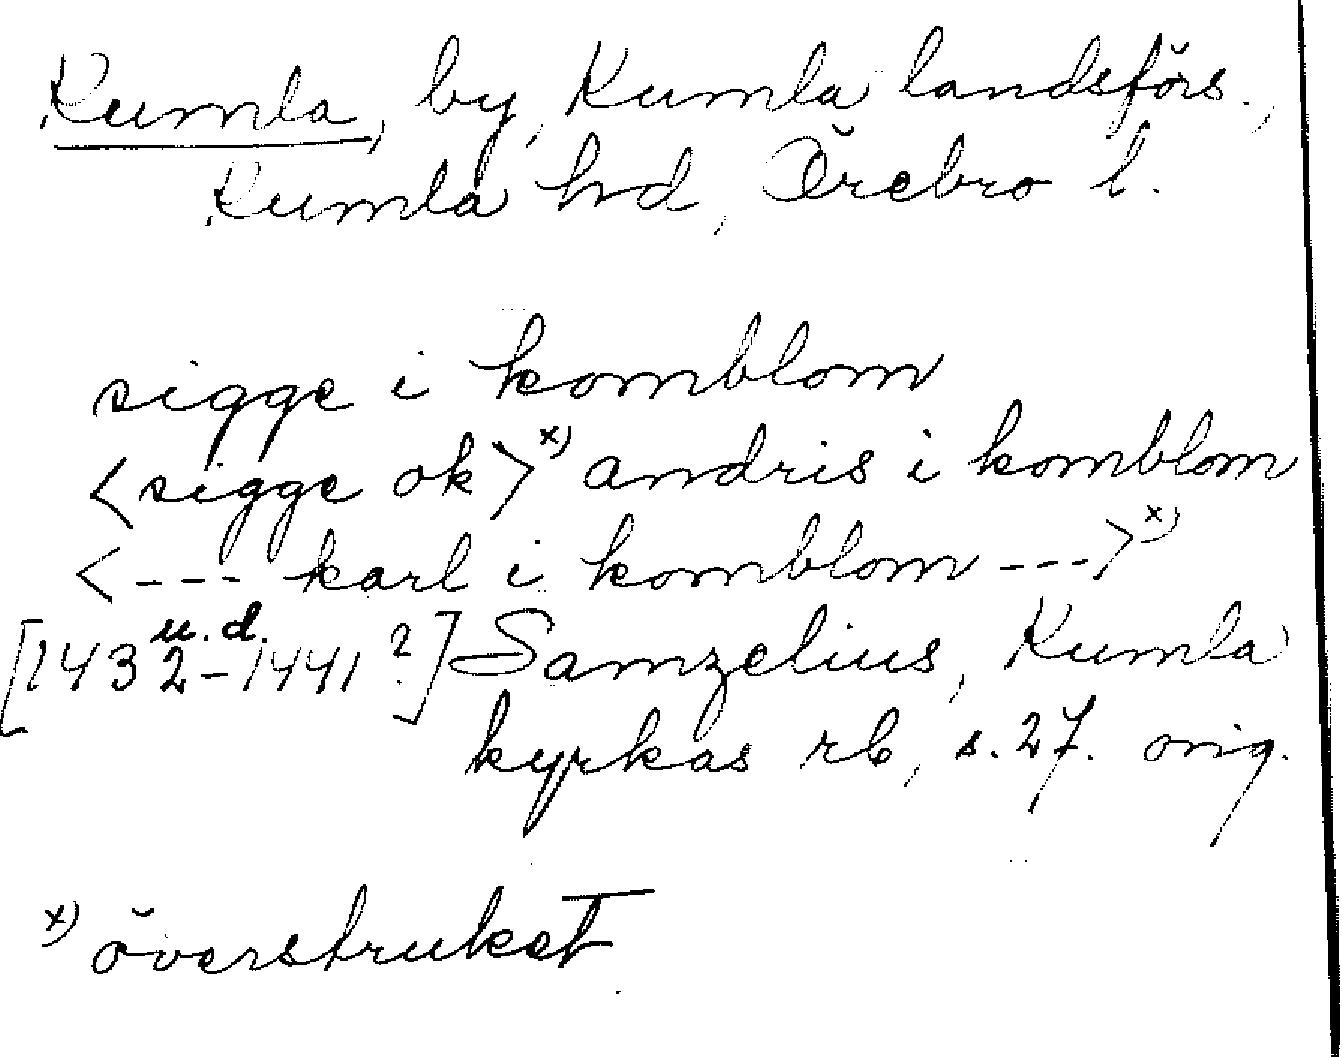 Kumla, by, Kumla landsförs.,
Kumla hd, Örebro l.
sigge i komblom
<sigge ok>x) andris i komblom
<--- karl i komblom --->x)
u.d.
[1432-1441?] Samzelius, Kumla
kyrkas rb, s.27. orig.
x) överstruket